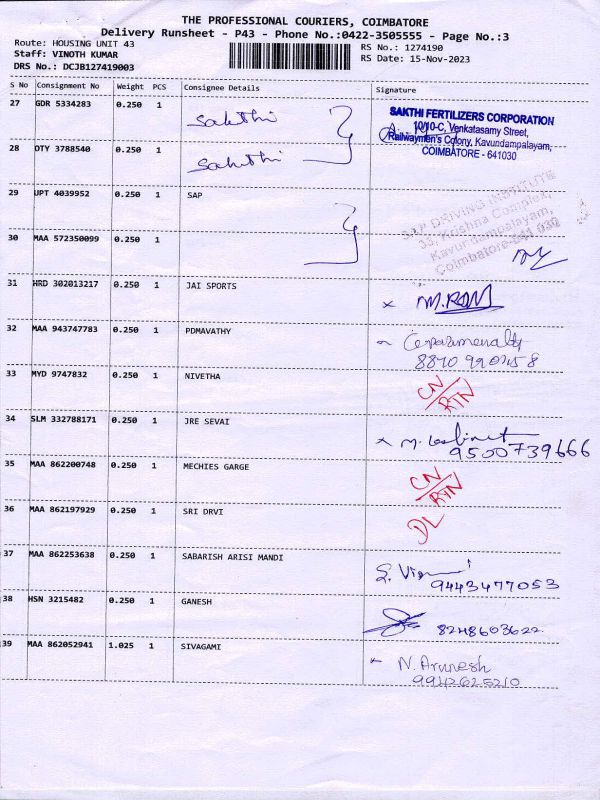 THE PROFESSIONAL COURIERS, COIMBATORE
Delivery Runsheet - P43 - Phone No.:0422-3505555 - Page No.:3
Route: HOUSING UNIT 43
RS No.: 1274190
Staff: VINOTH KUMAR
RS Date: 15-Nov-2023
DRS No.: DCJB127419003
S No Consignment No Weight PCS Consignee Details Signature
27 GDR 5334283 0.250 1 Sakthi
SAKTHI FERTILIZERS CORPORATION
10/10-C, Venkatasamy Street,
Railwaymen's Colony, Kavundampalayam,
COIMBATORE - 641030
28 OTY 3788540 0.250 1 Sakthi
29 UPT 4039952 0.250 1 SAP
DRIVING INSTITUTE
33, Krishna Complex,
Kavundampalayam,
Coimbatore-641 030
30 MAA 572350099 0.250 1
31 HRD 302013217 0.250 1 JAI SPORTS
x M.RAM
32 MAA 943747783 0.250 1 PDMAVATHY
33 MYD 9747832 0.250 1 NIVETHA
CN/RTN
34 SLM 332788171 0.250 1 JRE SEVAI
x M.
9500739666
35 MAA 862200748 0.250 1 MECHIES GARGE
CN/RTN
36 MAA 862197929 0.250 1 SRI DRVI
DL
37 MAA 862253638 0.250 1 SABARISH ARISI MANDI
9443477053
38 HSN 3215482 0.250 1 GANESH
8248603622
39 MAA 862052941 1.025 1 SIVAGAMI
N. Arunesh
9942625210